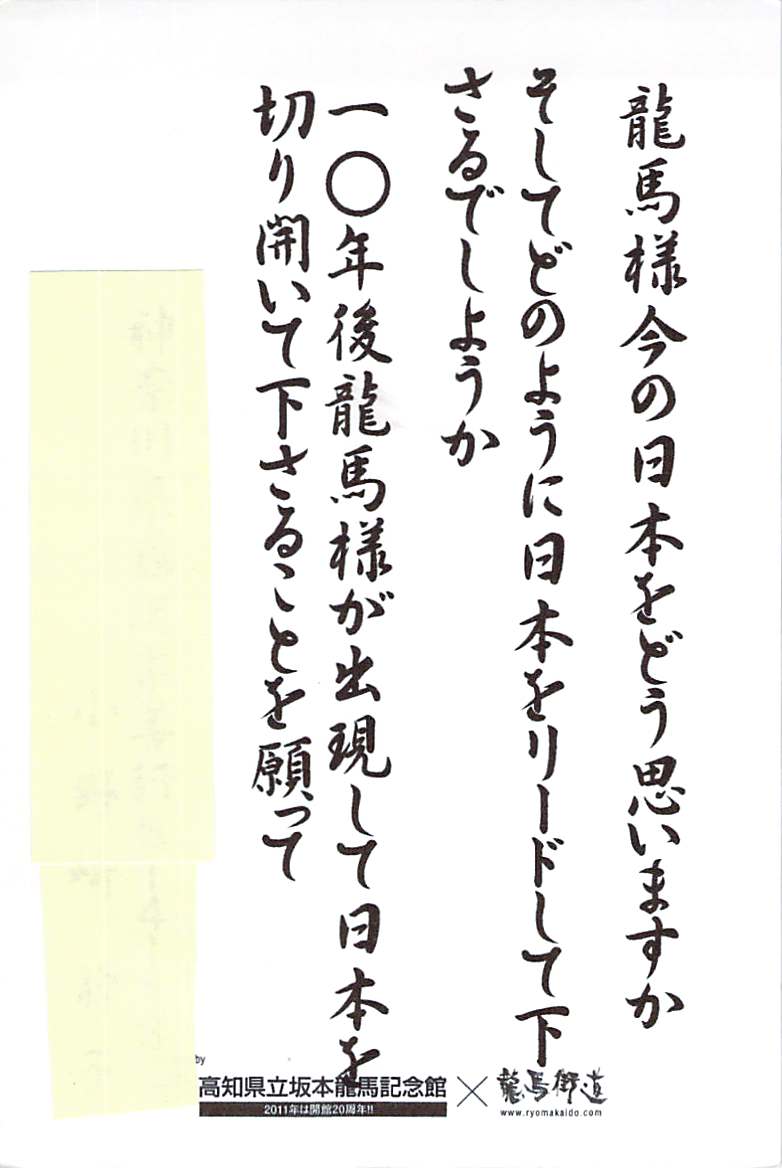 龍馬様今の日本をどう思いますか
そしてどのように日本をリードして下
さるでしようか
一〇年後龍馬様が出現して日本を
切り開いて下さることを願って
by
高知県立坂本龍馬記念館×龍馬街道
2011年は開館20周年!!
www.ryomakaido.com